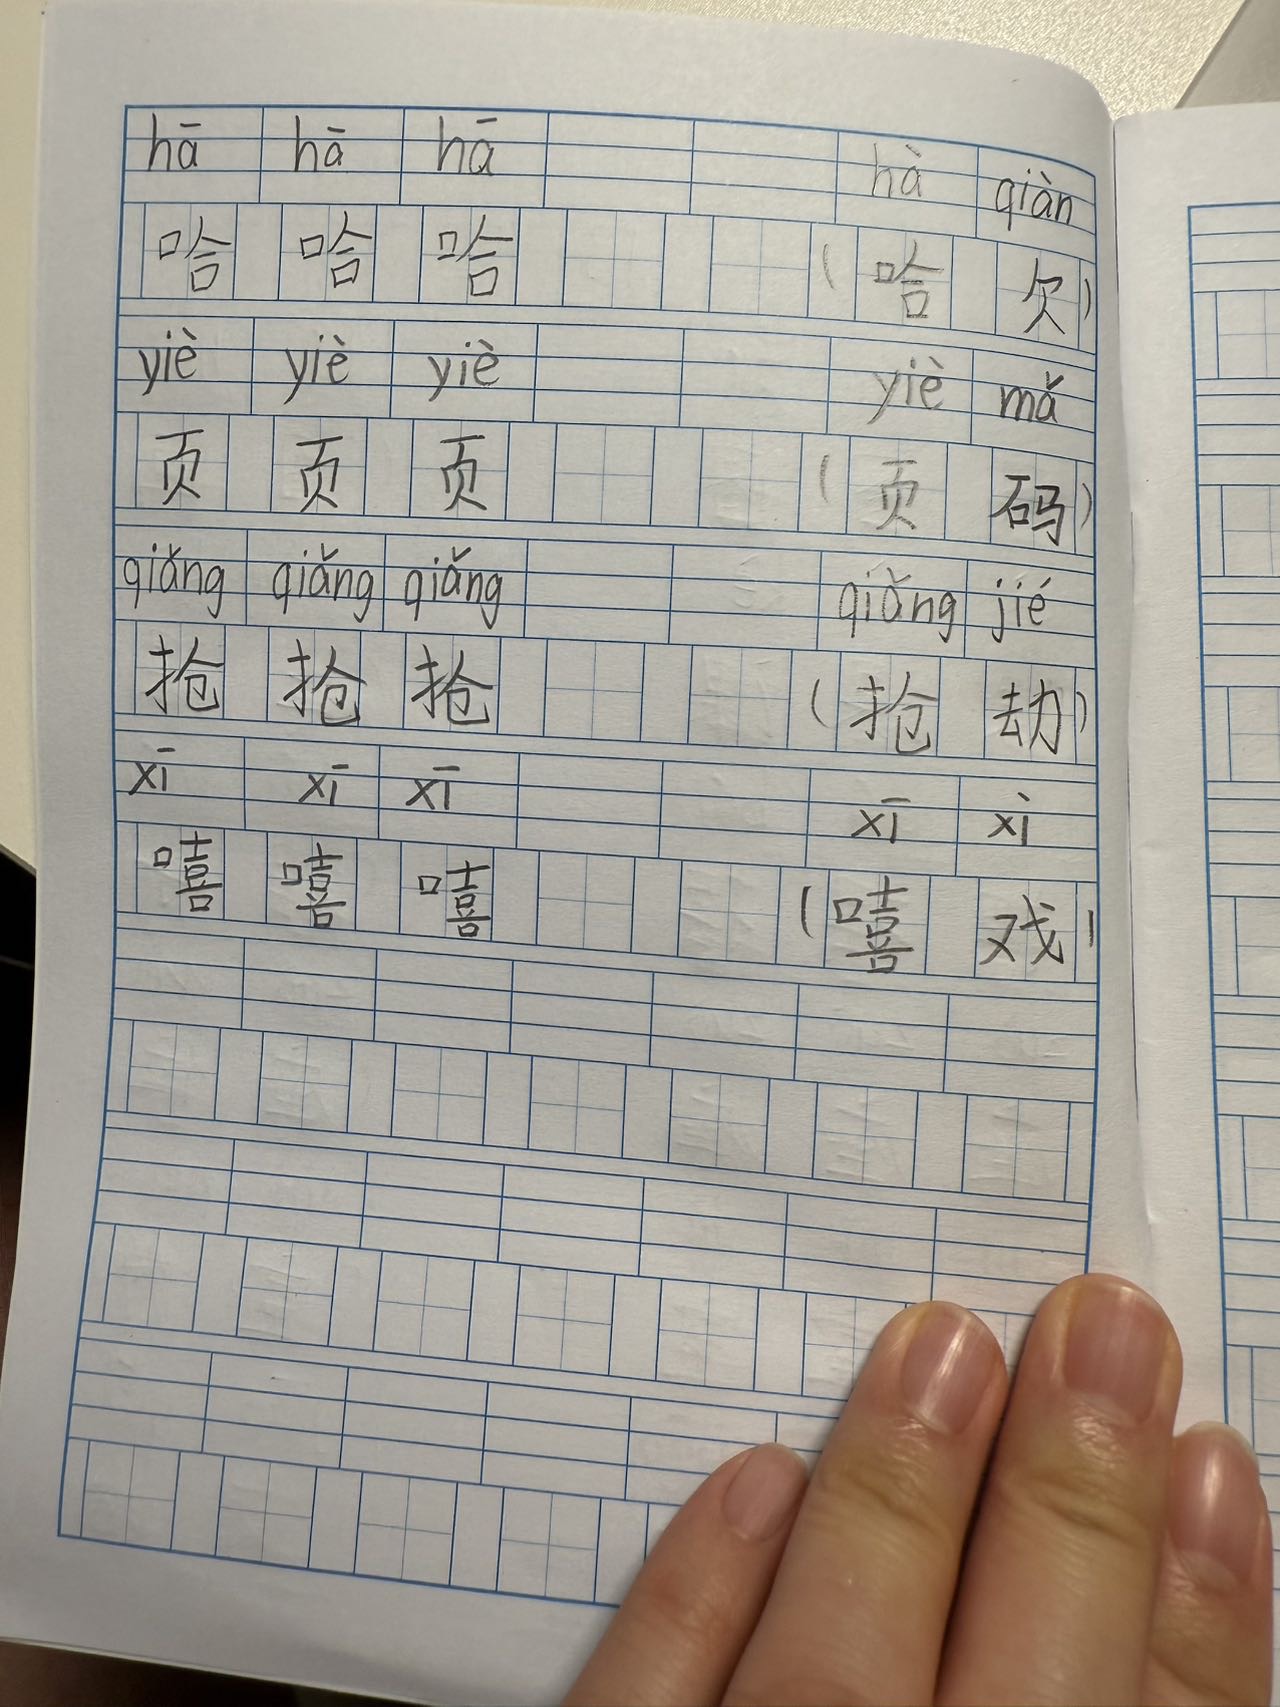 hā hā hā hà qiàn
哈 哈 哈 (哈 欠)
yiè yiè yiè yiè mǎ
页 页 页 (页 码)
qiǎng qiǎng qiǎng qiǎng jié
抢 抢 抢 (抢 劫)
xī xī xī xī xì
嘻 嘻 嘻 (嘻 戏)